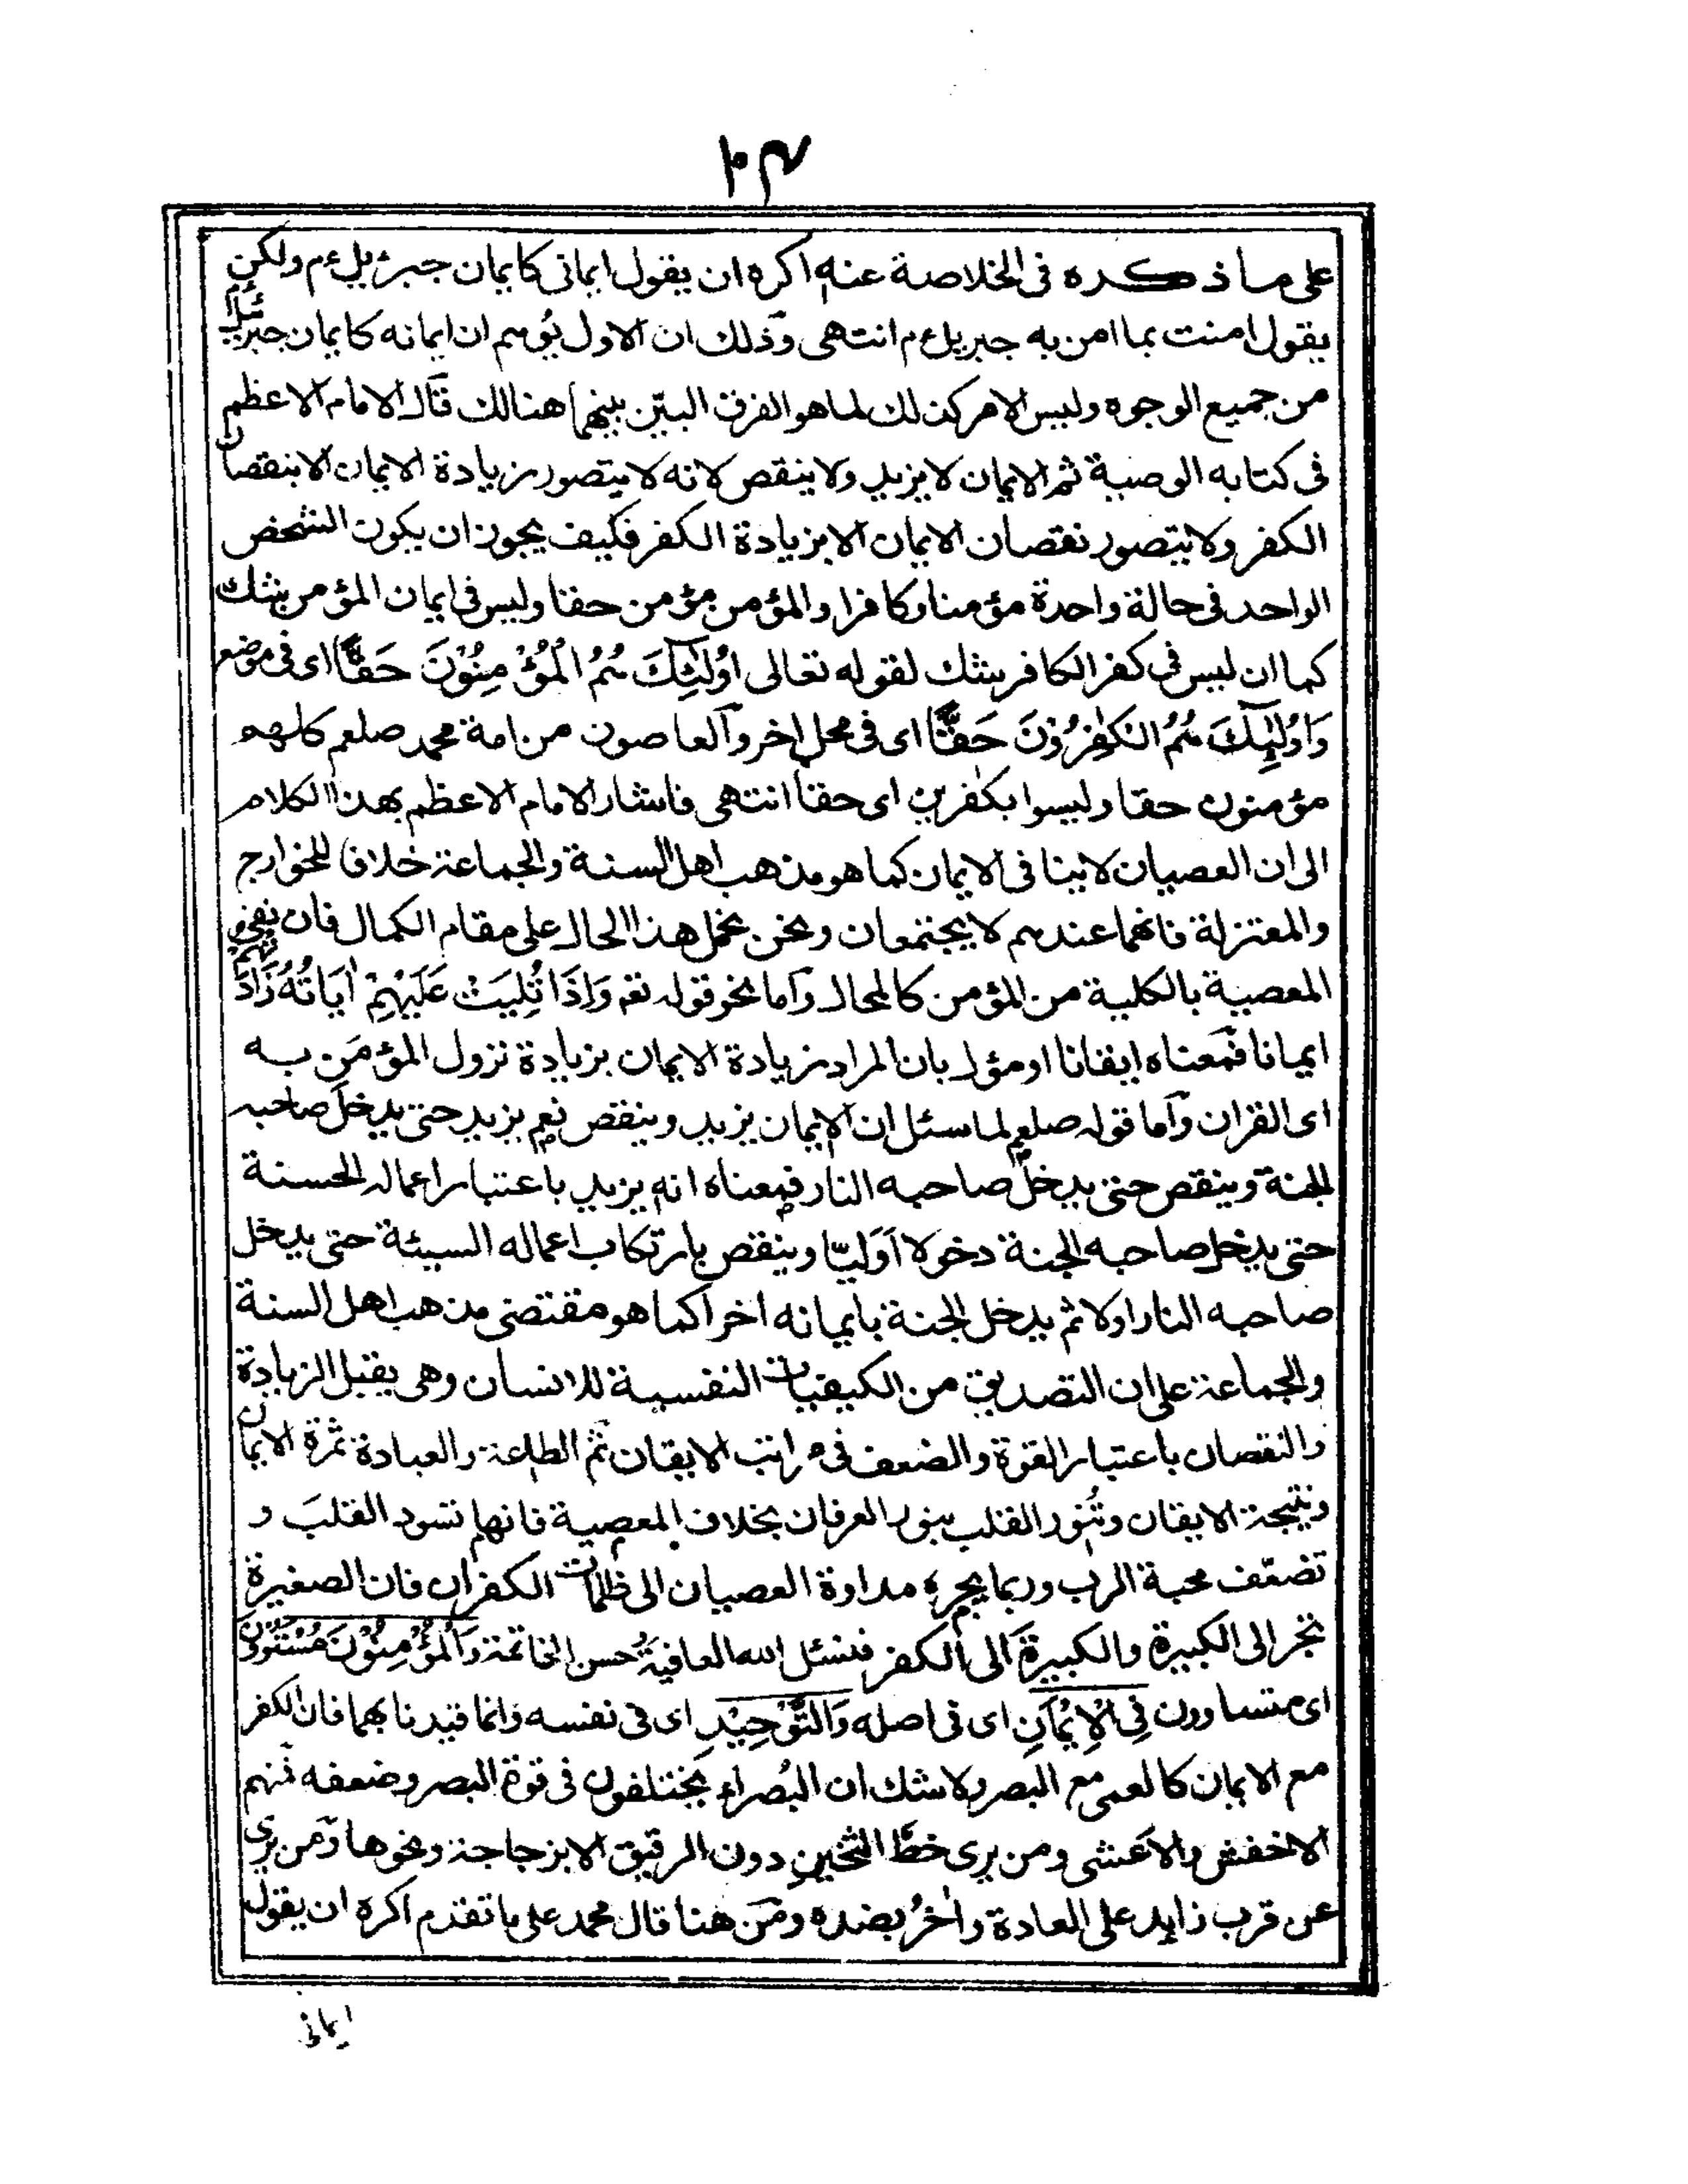 ١٠٣
على ما ذكره فى الخلاصة عنه اكره ان يقول ايمانى كايمان جبرئيل ءم ولكن
يقول امنت بما امن به جبريل ءم انتهى وذلك ان الاول يوهم ان ايمانه كايمان جبرئيل
من جميع الوجوه وليس الامر كذلك لما هو الفرق البيّن بينهما هنالك قال الامام الاعظم
فى كتابه الوصية ثم الايمان لا يزيد ولا ينقص لانه لا يتصور زيادة الايمان الا بنقصان
الكفر ولا يتصور نقصان الايمان الا بزيادة الكفر فكيف يجوز ان يكون الشخص
الواحد فى حالة واحدة مؤمنا وكافرا والمؤمن مؤمن حقا وليس فى ايمان المؤمن شك
كما ان ليس فى كفر الكافر شك لقوله تعالى اُولٰٓئِكَ هُمُ الْمُؤْمِنُوْنَ حَقًّا اى فى موضع
وَاُولٰٓئِكَ هُمُ الْكٰفِرُوْنَ حَقًّا اى فى محل اخر والعاصون من امة محمد صلعم كلهم
مؤمنون حقا وليسوا بكٰفرين اى حقا انتهى فاشار الامام الاعظم بهذا الكلام
الى ان العصيان لا ينا فى الايمان كما هو مذهب اهل السنة والجماعة خلافا للخوارج
والمعتزلة فانهما عندهم لا يجتمعان ونحن نحمل هذا الحال على مقام الكمال فان نفى
المعصية بالكلية من المؤمن كالمحال وآما نحو قوله تعم وَاِذَا تُلِيَتْ عَلَيْهِمْ اٰيَاتُهُ زَادَتْهُمْ
ايمانا فمعناه ايقانا او مؤل بان المراد زيادة الايمان بزيادة نزول المؤمَن به
اى القران وآما قوله صلعم لما سئل ان الايمان يزيد وينقص نعم يزيد حتى يدخل صاحبه
الجنة وينقص حتى يدخل صاحبه النار فمعناه انه يزيد باعتبار اعماله الحسنة
حتى يدخل صاحبه الجنة دخولا اَوَليّا وينقص بارتكاب اعماله السيئة حتى يدخل
صاحبه النار اولا ثم يدخل الجنة بايمانه اخرا كما هو مقتضى مذهب اهل السنة
والجماعة على ان التصديق من الكيفيات النفسية للانسان وهى يقبل الزيادة
والنقصان باعتبار القوة والضعف فى مراتب الايقان ثم الطاعة والعبادة ثمرة الايمان
ونتيجة الايقان وتُنور القلب بنور العرفان بخلاف المعصية فانها تسود القلبَ و
تضعّف محبة الرب وربما يجره مداوة العصيان الى ظلمات الكفران فان الصغيرة
تجر الى الكبيرة والكبيرةَ الى الكفر فنسئل الله العافية وحسن الخاتمة وَالْمُؤْمِنُوْنَ مُسْتَوُوْنَ
اى متساوون فِى الْاِيْمَانِ اى فى اصله وَالتَّوْحِيْدِ اى فى نفسه وانما قيدنا بهما فان الكفر
مع الايمان كالعمى مع البصر ولا شك ان البُصراء يختلفون فى قوة البصر وضعفه فمنهم
الاخفش والاعشى ومن يرى خطَّ الثخين دون الرقيق الا بزجاجة ونحوها ومن يرى
عن قرب زايد على العادة واٰخرُ بضده ومن هنا قال محمد على ما تقدم اكره ان يقول
ايمانى